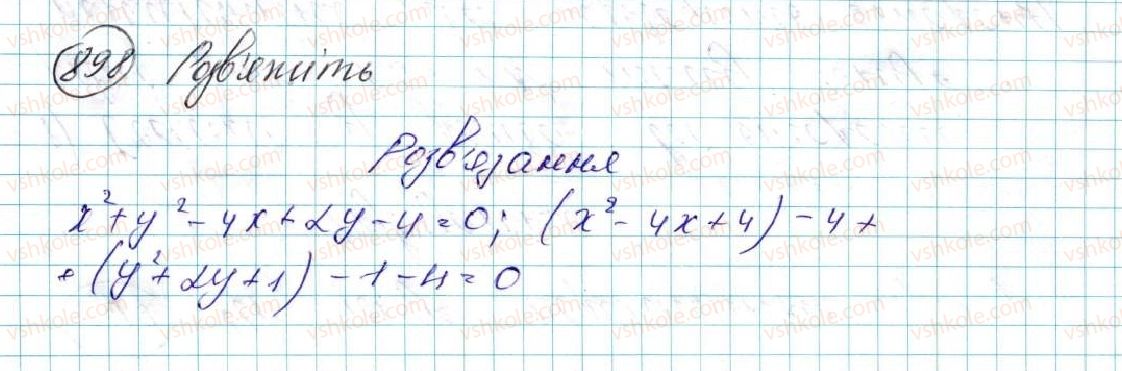 898 Розв'яжіть
Розв'язання
x² + y² - 4x + 2y - 4 = 0; (x² - 4x + 4) - 4 +
+ (y² + 2y + 1) - 1 - 4 = 0
vshkole.com